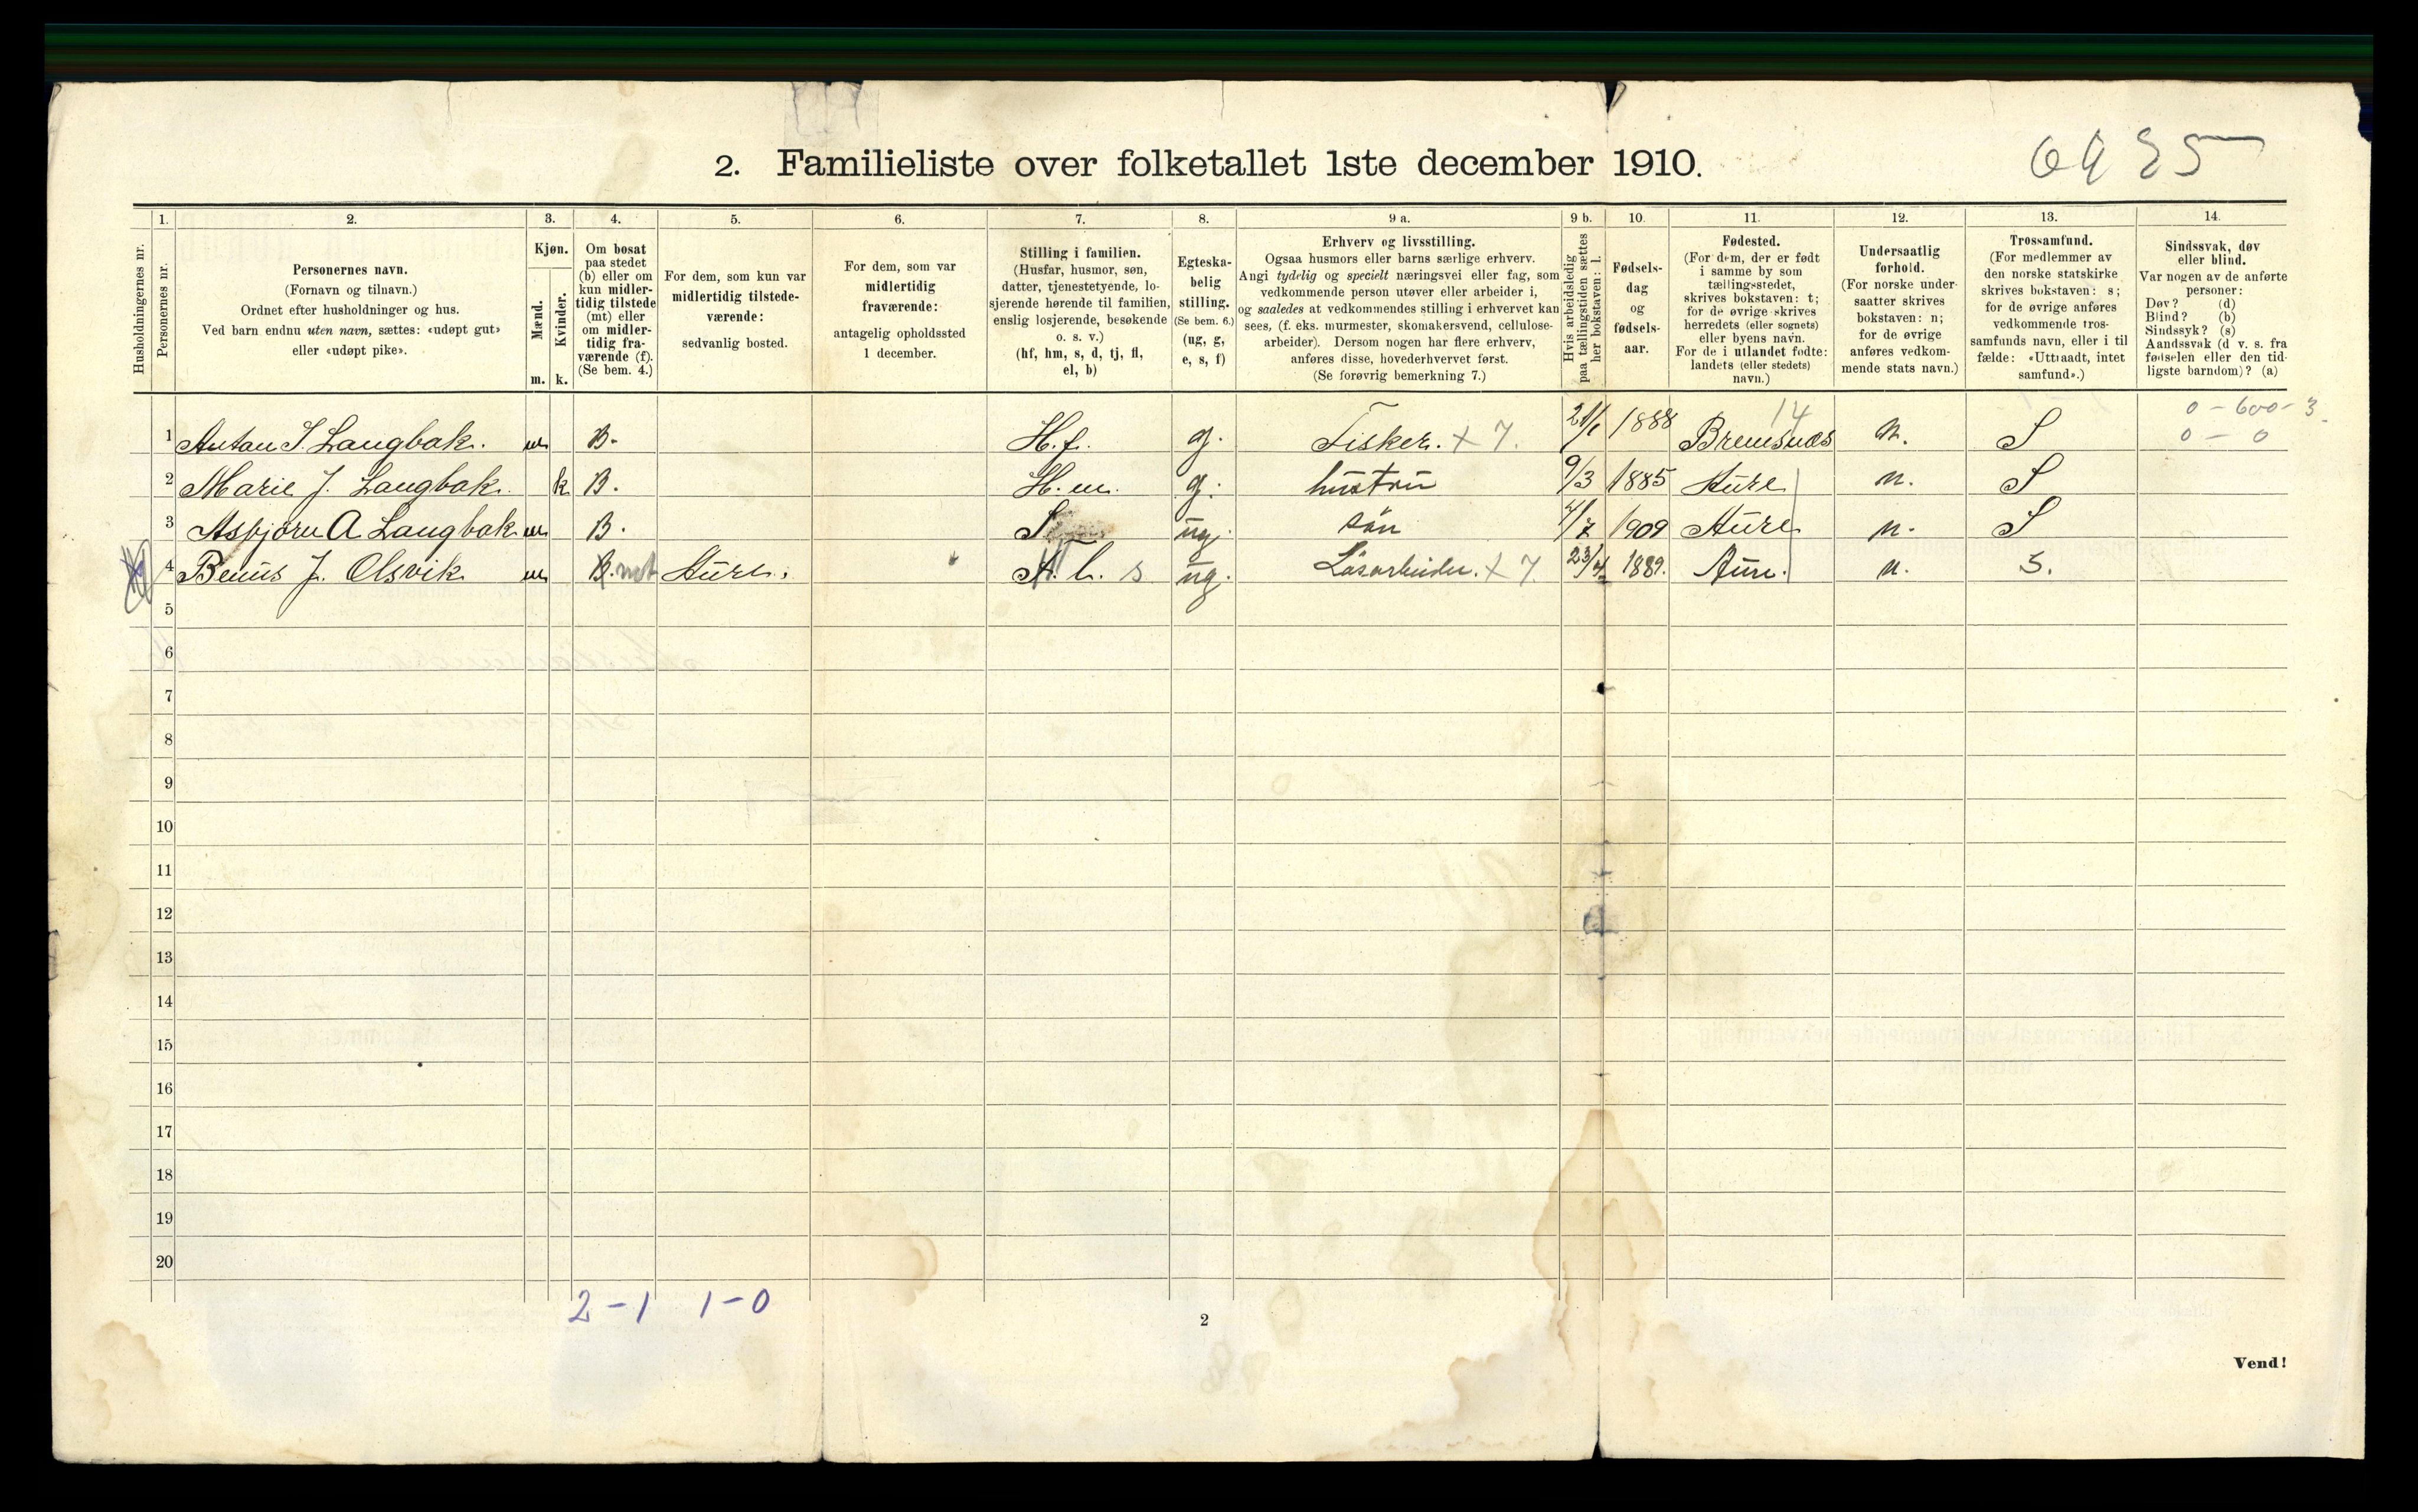 2. Familieliste over folketallet 1ste december 1910.
1. 2. 3. 4. 5. 6. 7. 8. 9 a. 9 b. 10. 11. 12. 13. 14.
Husholdningernes nr.
Personernes nr.
Personernes navn.
(Fornavn og tilnavn.)
Ordnet efter husholdninger og hus.
Ved barn endnu uten navn, sættes: «udøpt gut»
eller «udøpt pike».
Kjøn.
Mænd.
Kvinder.
m. k.
Om bosat
paa stedet
(b) eller om
kun midler-
tidig tilstede
(mt) eller
om midler-
tidig fra-
værende (f).
(Se bem. 4.)
For dem, som kun var
midlertidig tilstede-
værende:
sedvanlig bosted.
For dem, som var
midlertidig
fraværende:
antagelig opholdssted
1 december.
Stilling i familien.
(Husfar, husmor, søn,
datter, tjenestetyende, lo-
sjerende hørende til familien,
enslig losjerende, besøkende
o. s. v.)
(hf, hm, s, d, tj, fl,
el, b)
Egteska-
belig
stilling.
(Se bem. 6.)
(ug, g,
e, s, f)
Erhverv og livsstilling.
Ogsaa husmors eller barns særlige erhverv.
Angi tydelig og specielt næringsvei eller fag, som
vedkommende person utøver eller arbeider i,
og saaledes at vedkommendes stilling i erhvervet kan
sees, (f. eks. murmester, skomakersvend, cellulose-
arbeider). Dersom nogen har flere erhverv,
anføres disse, hovederhvervet først.
(Se forøvrig bemerkning 7.)
Hvis arbeidsledig
paa tællingstiden sættes
her bokstaven: l.
Fødsels-
dag
og
fødsels-
aar.
Fødested.
(For dem, der er født
i samme by som
tællingsstedet,
skrives bokstaven: t;
for de øvrige skrives
herredets (eller sognets)
eller byens navn.
For de i utlandet fødte:
landets (eller stedets)
navn.)
Undersaatlig
forhold.
(For norske under-
saatter skrives
bokstaven: n;
for de øvrige
anføres vedkom-
mende stats navn.)
Trossamfund.
(For medlemmer av
den norske statskirke
skrives bokstaven: s;
for de øvrige anføres
vedkommende tros-
samfunds navn, eller i til
fælde: «Uttraadt, intet
samfund».)
Sindssvak, døv
eller blind.
Var nogen av de anførte
personer:
Døv? (d)
Blind? (b)
Sindssyk? (s)
Aandssvak (d v. s. fra
fødselen eller den tid-
ligste barndom)? (a)
14 0-600-3
1 Anton S. Langbak. m B. H.f. g. Fisker. x 7. 1888 Bremsnæs n. S 0-0
2 Marie J. Langbak. k B. H.m. g. hustru 9/3 1885 Aure n. S
3 Asbjørn A Langbak m B. S ug. sön 1909 Aure n. S
4 Benus J. Olsvik m B. mt Aure. s ug. Lösarbeider. x 7. 1889. Aure. n. S.
5
6
7
8
9
10
11
12
13
14
15
16
17
18
19
20
2-1 1-0
2
Vend!